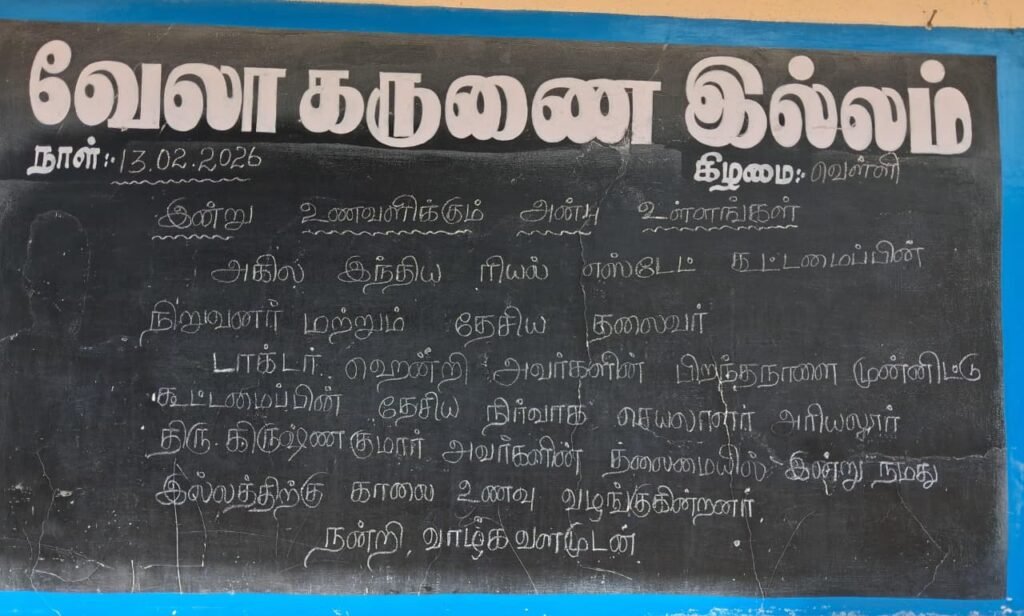 வேலா கருணை இல்லம்
நாள்:- 13.02.2026 கிழமை:- வெள்ளி
இன்று உணவளிக்கும் அன்பு உள்ளங்கள்
அகில இந்திய ரியல் எஸ்டேட் கூட்டமைப்பின்
நிறுவனர் மற்றும் தேசிய தலைவர்
டாக்டர். ஹென்றி அவர்களின் பிறந்தநாளை முன்னிட்டு
கூட்டமைப்பின் தேசிய நிர்வாக செயலாளர் அரியலூர்
திரு. கிருஷ்ணகுமார் அவர்களின் தலைமையில் இன்று நமது
இல்லத்திற்கு காலை உணவு வழங்குகின்றனர்.
நன்றி, வாழ்க வளமுடன்